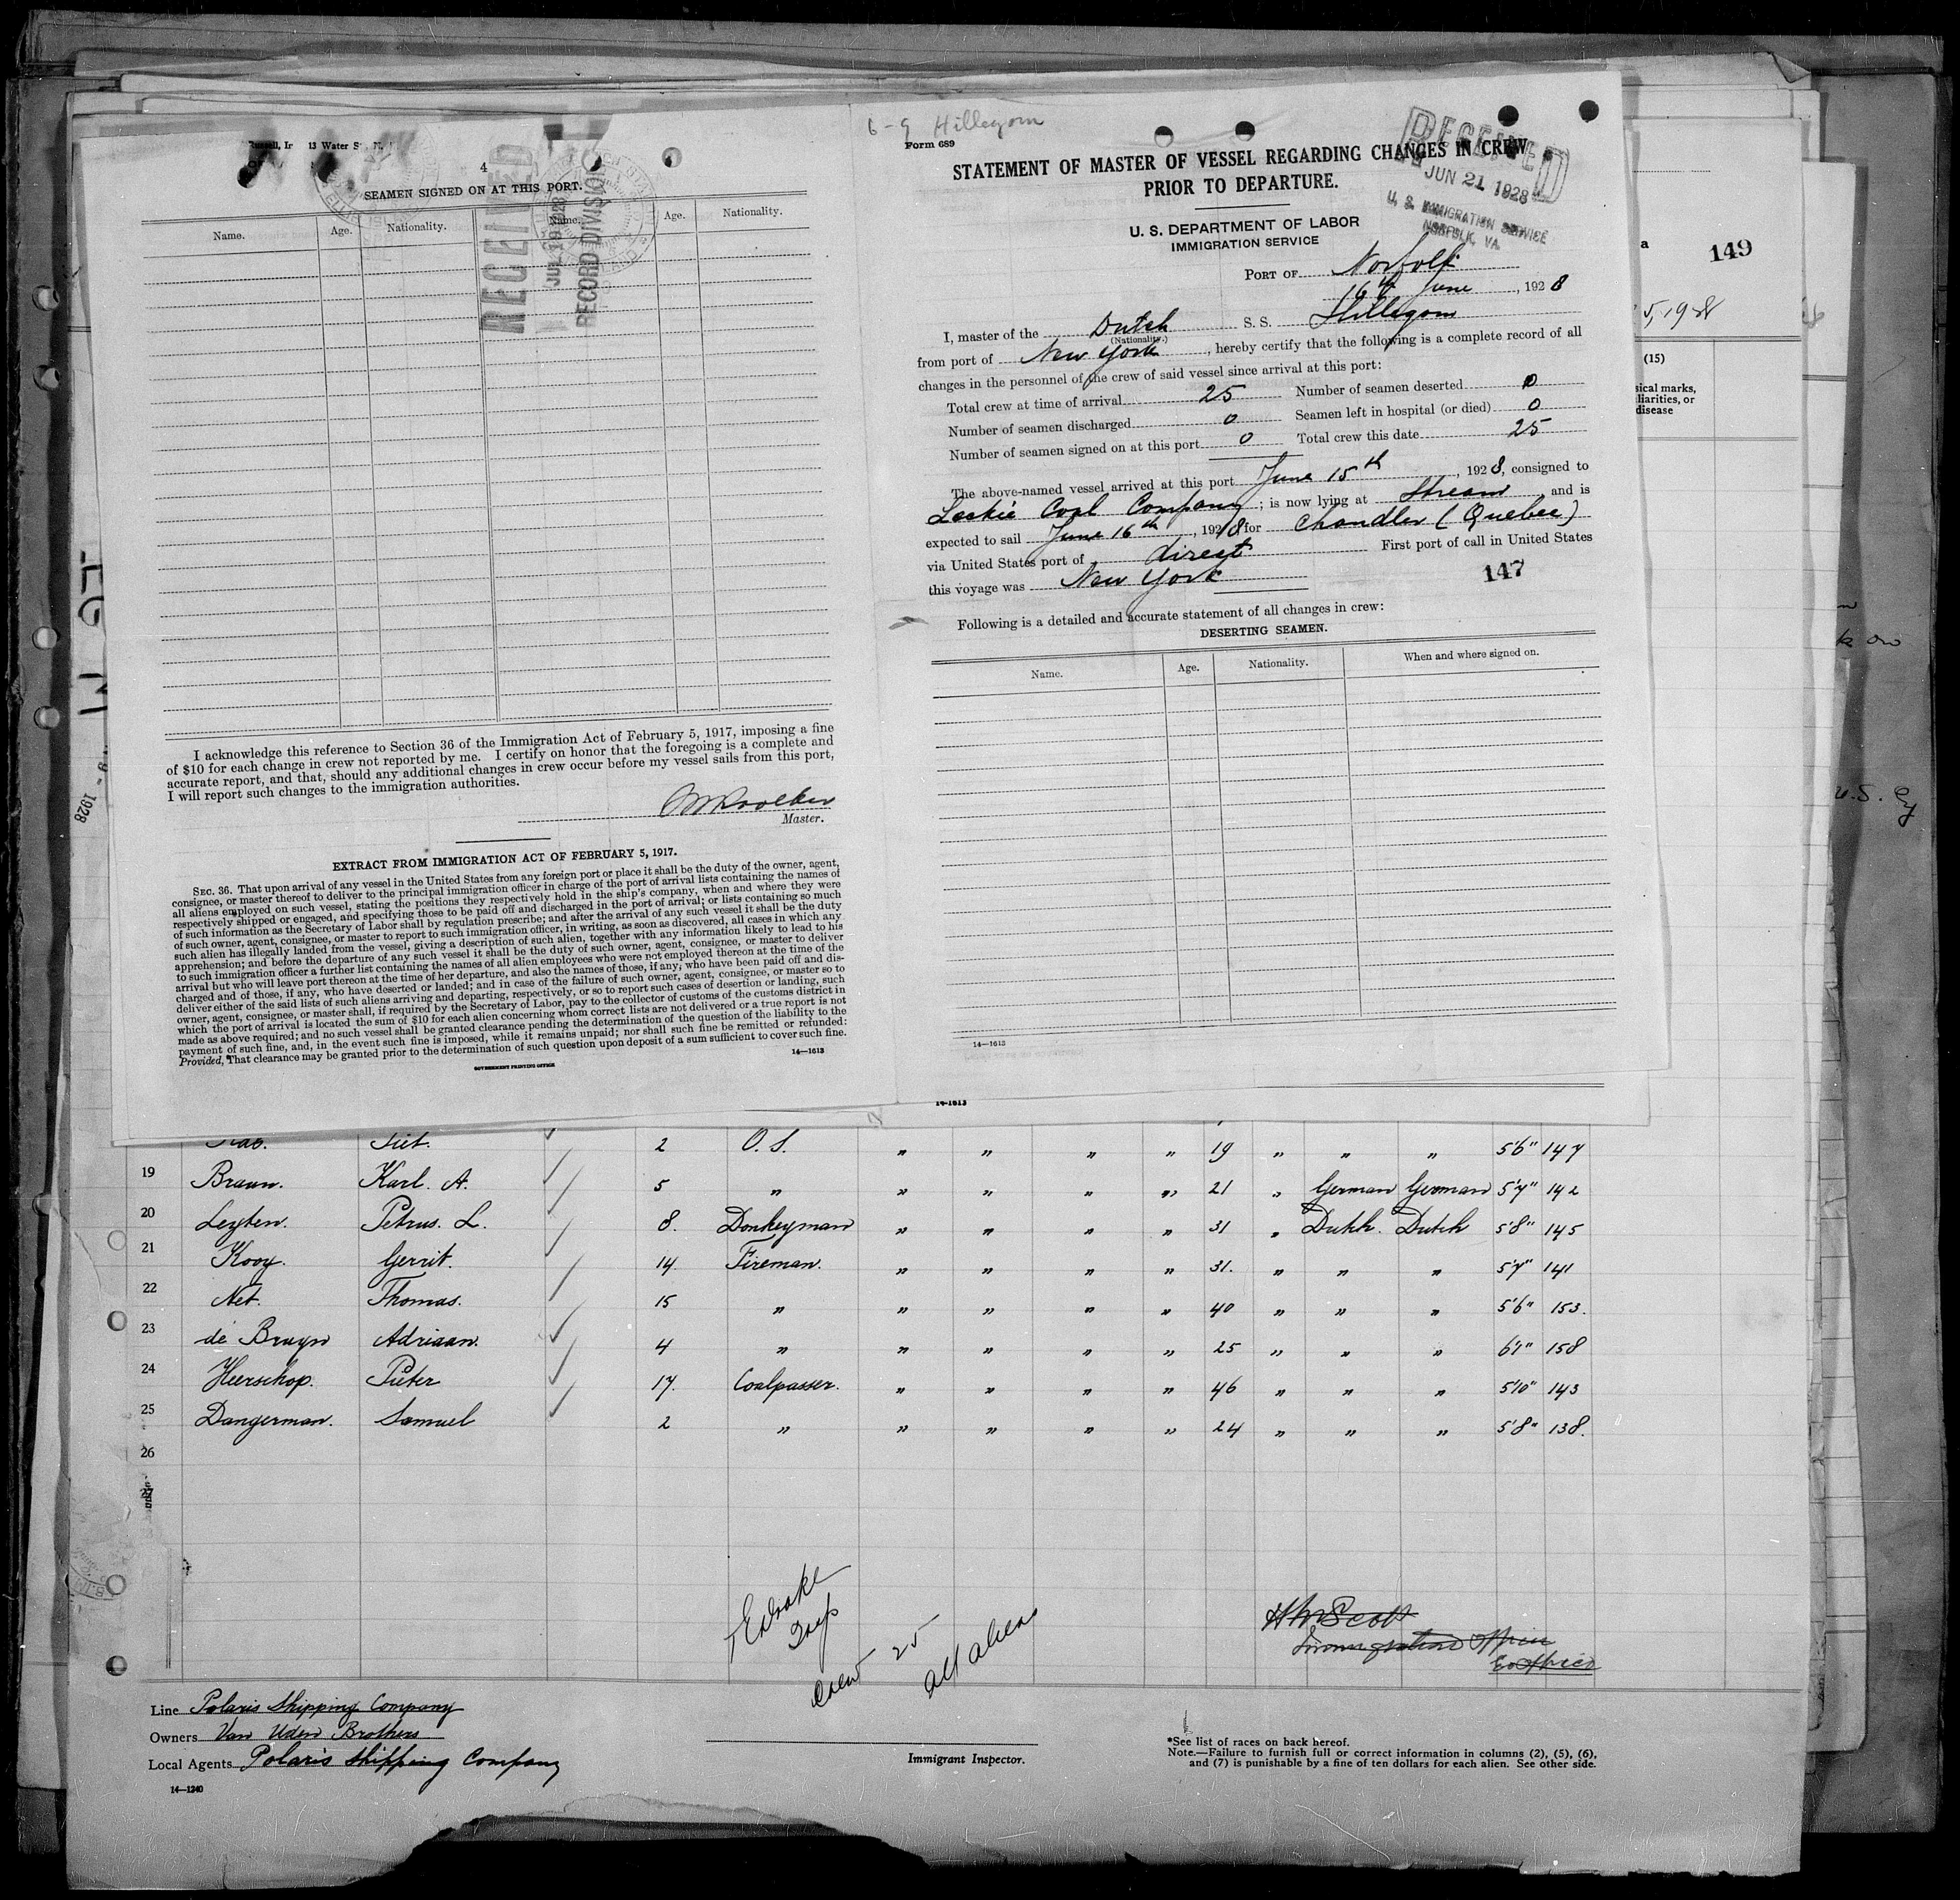 6-9 Hillegom
13 Water St. N.
4
SEAMEN SIGNED ON AT THIS PORT.
Name. Age. Nationality. Name. Age. Nationality.
RECEIVED
JUL 19 1928
RECORD DIVISION
I acknowledge this reference to Section 36 of the Immigration Act of February 5, 1917, imposing a fine
of $10 for each change in crew not reported by me. I certify on honor that the foregoing is a complete and
accurate report, and that, should any additional changes in crew occur before my vessel sails from this port,
I will report such changes to the immigration authorities.
Master.
EXTRACT FROM IMMIGRATION ACT OF FEBRUARY 5, 1917.
SEC. 36. That upon arrival of any vessel in the United States from any foreign port or place it shall be the duty of the owner, agent,
consignee, or master thereof to deliver to the principal immigration officer in charge of the port of arrival lists containing the names of
all aliens employed on such vessel, stating the positions they respectively hold in the ship's company, when and where they were
respectively shipped or engaged, and specifying those to be paid off and discharged in the port of arrival; or lists containing so much
of such information as the Secretary of Labor shall by regulation prescribe; and after the arrival of any such vessel it shall be the duty
of such owner, agent, consignee, or master to report to such immigration officer, in writing, as soon as discovered, all cases in which any
such alien has illegally landed from the vessel, giving a description of such alien, together with any information likely to lead to his
apprehension; and before the departure of any such vessel it shall be the duty of such owner, agent, consignee, or master to deliver
to such immigration officer a further list containing the names of all alien employees who were not employed thereon at the time of the
arrival but who will leave port thereon at the time of her departure, and also the names of those, if any, who have been paid off and dis-
charged and of those, if any, who have deserted or landed; and in case of the failure of such owner, agent, consignee, or master so to
deliver either of the said lists of such aliens arriving and departing, respectively, or so to report such cases of desertion or landing, such
owner, agent, consignee, or master shall, if required by the Secretary of Labor, pay to the collector of customs of the customs district in
which the port of arrival is located the sum of $10 for each alien concerning whom correct lists are not delivered or a true report is not
made as above required; and no such vessel shall be granted clearance pending the determination of the question of the liability to the
payment of such fine, and, in the event such fine is imposed, while it remains unpaid; nor shall such fine be remitted or refunded:
Provided, That clearance may be granted prior to the determination of such question upon deposit of a sum sufficient to cover such fine.
14—1613
GOVERNMENT PRINTING OFFICE
Form 689
STATEMENT OF MASTER OF VESSEL REGARDING CHANGES IN CREW
PRIOR TO DEPARTURE.
RECEIVED
JUN 21 1928
U. S. IMMIGRATION SERVICE
NORFOLK, VA.
U. S. DEPARTMENT OF LABOR
IMMIGRATION SERVICE
PORT OF Norfolk
16th June, 1928
I, master of the Dutch S. S. Hillegom
(Nationality.)
from port of New York, hereby certify that the following is a complete record of all
changes in the personnel of the crew of said vessel since arrival at this port:
Total crew at time of arrival 25 Number of seamen deserted 0
Number of seamen discharged 0 Seamen left in hospital (or died) 0
Number of seamen signed on at this port 0 Total crew this date 25
The above-named vessel arrived at this port June 15th, 1928, consigned to
Leckie Coal Company; is now lying at Stream, and is
expected to sail June 16th, 1928 for Chandler (Quebec)
via United States port of direct First port of call in United States
this voyage was New York
147
Following is a detailed and accurate statement of all changes in crew:
DESERTING SEAMEN.
Name. Age. Nationality. When and where signed on.
14—1613
14-1613
a 149
5, 1928
(15)
sical marks,
liarities, or
disease
1928
U.S. Cy
Piet. 2 O. S. " " " " 19 " " " 5'6" 147
19 Braun. Karl. A. 5 " " " " " 21 " German German 5'7" 142
20 Leyten. Petrus. L. 8. Donkeyman " " " " 31 " Dutch. Dutch 5'8" 145
21 Kooy. Gerrit. 14. Fireman. " " " " 31. " " " 5'7" 141
22 Net. Thomas. 15 " " " " " 40 " " " 5'6" 153.
23 de Bruyn Adriaan. 4 " " " " " 25 " " " 6'1" 158
24 Heerschop. Pieter 17. Coalpasser. " " " " 46 " " " 5'10" 143
25 Dangerman. Samuel 2 " " " " " 24 " " " 5'8" 138.
26
27
Crew 25
all aliens
H M Scott
Immigration Officer
Line Polaris Shipping Company
Owners Van Uden Brothers
Local Agents Polaris Shipping Company
14—1240
Immigrant Inspector.
*See list of races on back hereof.
Note.—Failure to furnish full or correct information in columns (2), (5), (6),
and (7) is punishable by a fine of ten dollars for each alien. See other side.